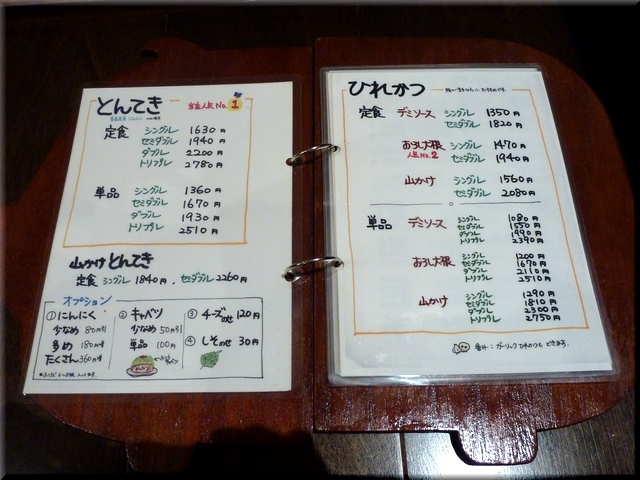 とんてき 当店人気No.1
定食 シングル 1630円
セミダブル 1940円
ダブル 2200円
トリプル 2780円
単品 シングル 1360円
セミダブル 1670円
ダブル 1930円
トリプル 2510円
山かけとんてき
定食 シングル 1840円、セミダブル 2260円
オプション
①にんにく
少なめ 80円引
多め 180円増
たくさん 360円増
②キャベツ
少なめ 50円引
単品 100円
③チーズのせ 120円
④しそのせ 30円
ひれかつ
定食 デミソース シングル 1350円
セミダブル 1820円
おろし大根 シングル 1470円
人気No.2 セミダブル 1940円
山かけ シングル 1560円
セミダブル 2080円
単品 デミソース シングル 1080円
セミダブル 1550円
ダブル 1990円
トリプル 2390円
おろし大根 シングル 1200円
セミダブル 1670円
ダブル 2110円
トリプル 2510円
山かけ シングル 1290円
セミダブル 1810円
ダブル 2300円
トリプル 2750円
番外：ガーリックひれかつもできます。